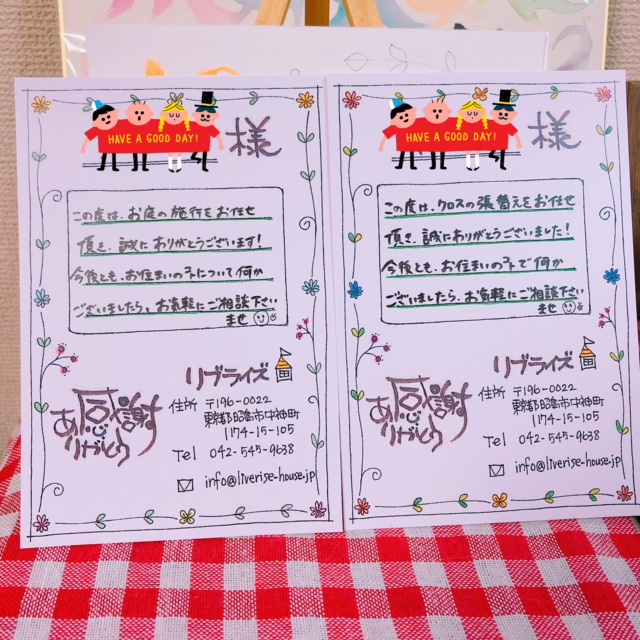 HAVE A GOOD DAY!
様
この度は、お庭の施行をお任せ
頂き、誠にありがとうございます!
今後とも、お住まいの事について何か
ございましたら、お気軽にご相談下さい
ませ
リブライズ
感謝
ありがとう
住所 〒196-0022
東京都昭島市中神町
1174-15-105
Tel 042-545-9638
info@liverise-house.jp
HAVE A GOOD DAY!
様
この度は、クロスの張替えをお任せ
頂き、誠にありがとうございました!
今後とも、お住まいの事で何か
ございましたら、お気軽にご相談下さい
ませ
リブライズ
感謝
ありがとう
住所 〒196-0022
東京都昭島市中神町
1174-15-105
Tel 042-545-9638
info@liverise-house.jp